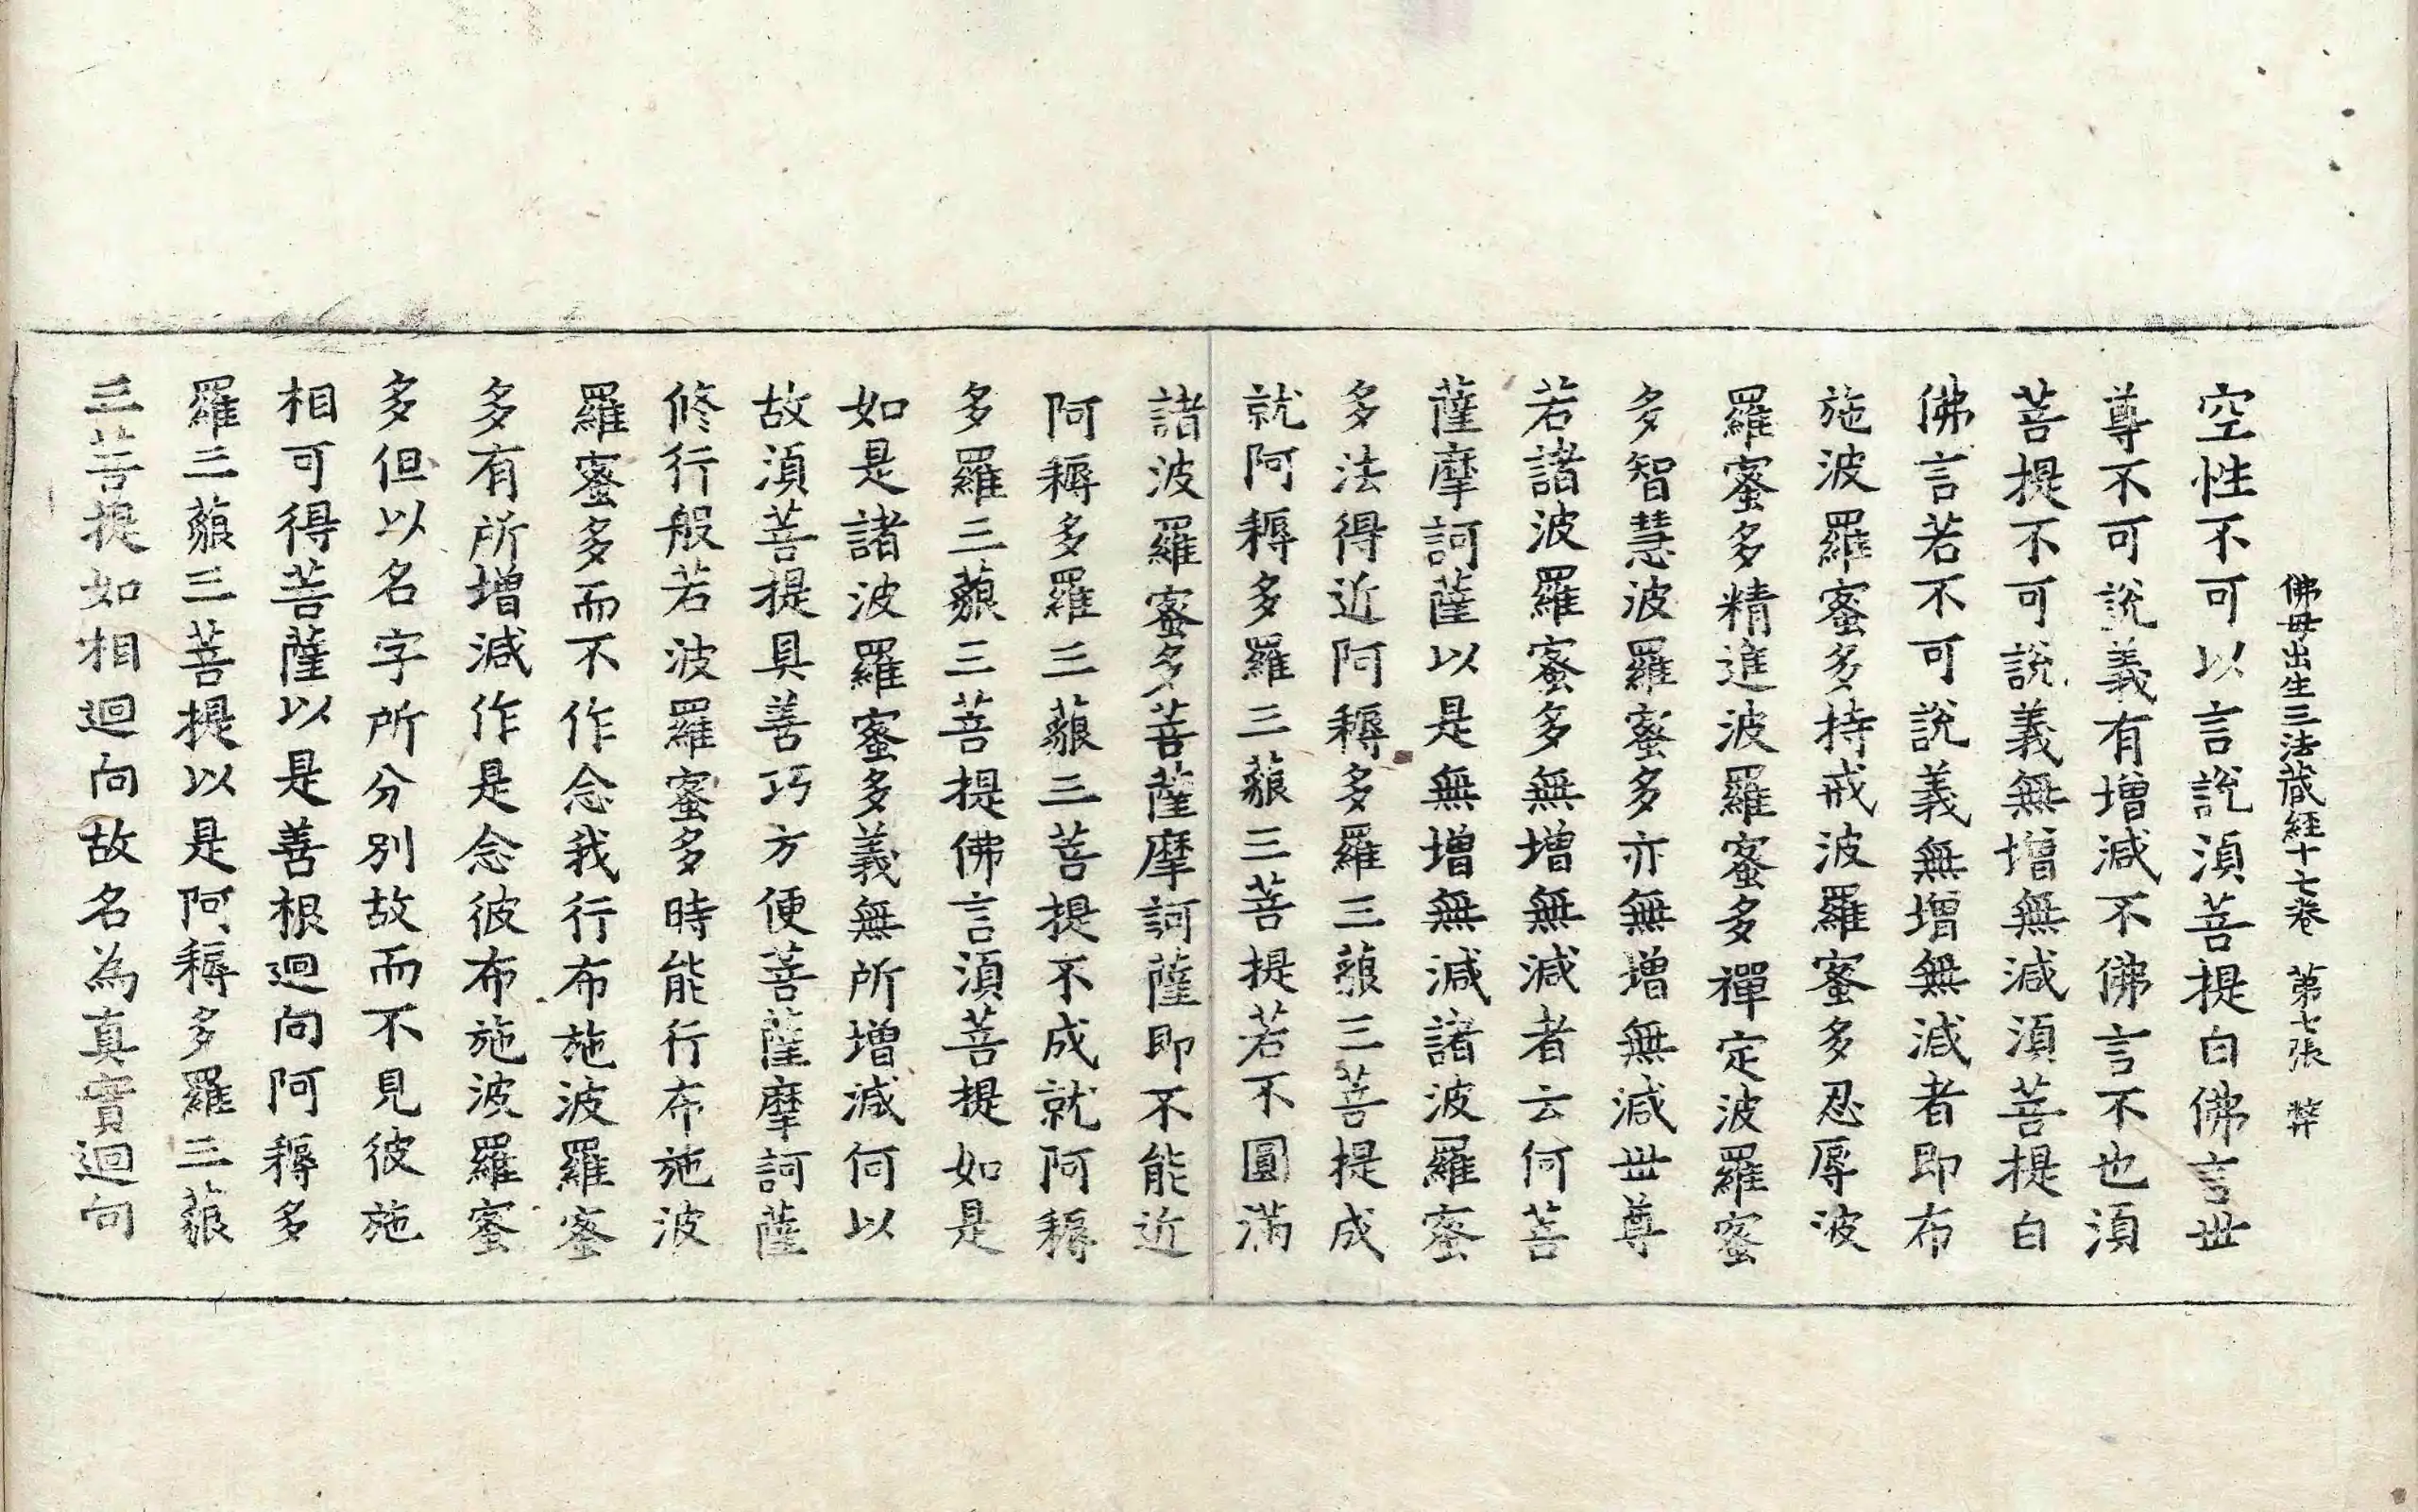 佛母出生三法藏經十七卷 第七張 弁
空性不可以言說湏菩提白佛言世
尊不可說義有增減不佛言不也湏
菩提不可說義無增無減湏菩提白
佛言若不可說義無增無減者即布
施波羅蜜多持戒波羅蜜多忍辱波
羅蜜多精進波羅蜜多禪定波羅蜜
多智慧波羅蜜多亦無增無減世尊
若諸波羅蜜多無增無減者云何菩
薩摩訶薩以是無增無減諸波羅蜜
多法得近阿耨多羅三藐三菩提成
就阿耨多羅三藐三菩提若不圓滿
諸波羅蜜多菩薩摩訶薩即不能近
阿耨多羅三藐三菩提不成就阿耨
多羅三藐三菩提佛言湏菩提如是
如是諸波羅蜜多義無所增減何以
故湏菩提具善巧方便菩薩摩訶薩
修行般若波羅蜜多時能行布施波
羅蜜多而不作念我行布施波羅蜜
多有所增減作是念彼布施波羅蜜
多但以名字所分別故而不見彼施
相可得菩薩以是善根迴向阿耨多
羅三藐三菩提以是阿耨多羅三藐
三菩提如相迴向故名為真實迴向